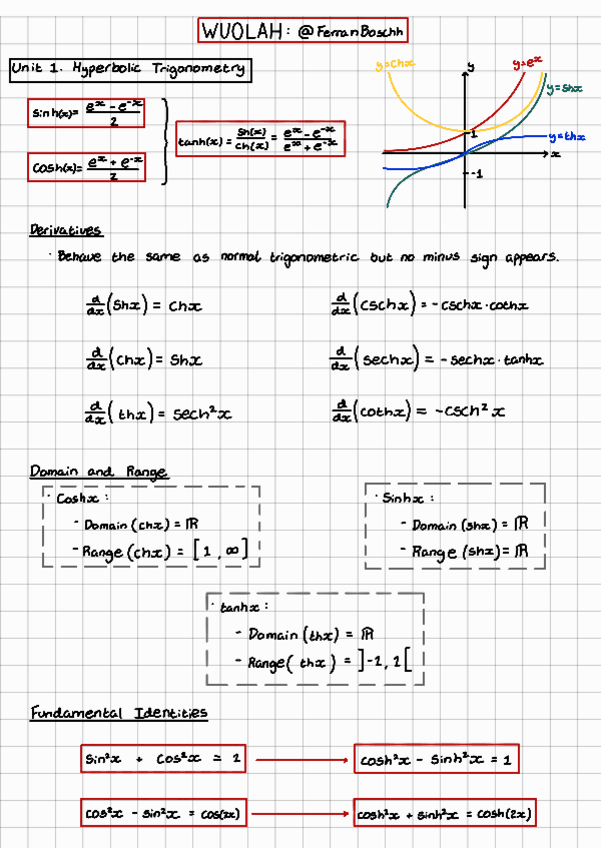 WUOLAH: @FerranBoschh
Unit 1. Hyperbolic Trigonometry
sinh(x) = (e^x - e^-x)/2
cosh(x) = (e^x + e^-x)/2
tanh(x) = sh(x)/ch(x) = (e^x - e^-x)/(e^x + e^-x)
y=chx
y
y=e^x
y=shx
1
y=thx
x
-1
Derivatives
· Behave the same as normal trigonometric but no minus sign appears.
d/dx (shx) = chx
d/dx (cschx) = -cschx·cothx
d/dx (chx) = shx
d/dx (sechx) = -sechx·tanhx
d/dx (thx) = sech²x
d/dx (cothx) = -csch²x
Domain and Range
· Coshx:
- Domain (chx) = ℝ
- Range (chx) = [1, ∞]
· Sinhx:
- Domain (shx) = ℝ
- Range (shx) = ℝ
· tanhx:
- Domain (thx) = ℝ
- Range (thx) = ]-1, 1[
Fundamental Identities
Sin²x + Cos²x = 1
cosh²x - Sinh²x = 1
cos²x - sin²x = cos(2x)
cosh²x + sinh²x = cosh(2x)